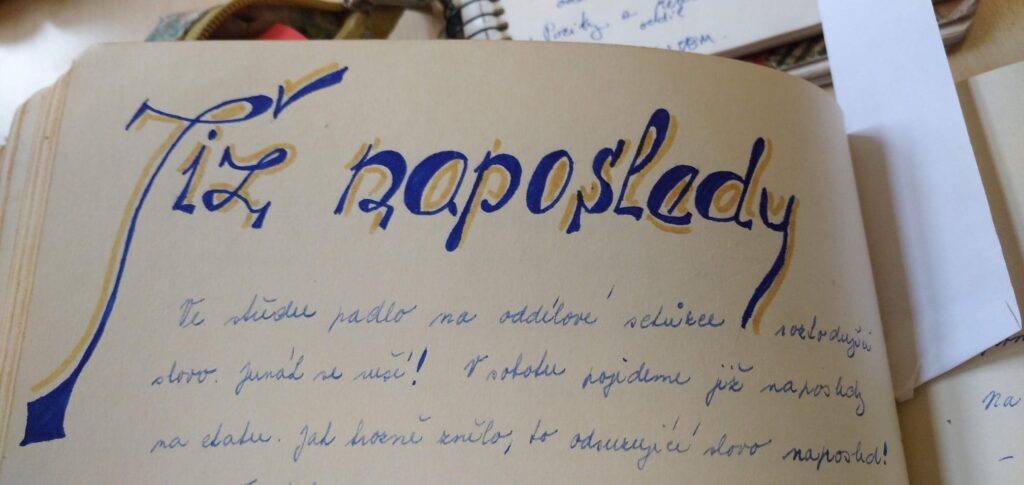 Již naposledy
Ve středu padlo na oddílové schůzce rozhodující
slovo. Junák se ruší! V sobotu pojedeme již naposledy
na chatu. Jak hrozně znělo, to odsuzující slovo naposled!
na